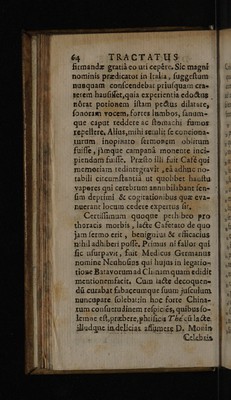 64 TRACTATUS
firmandæ gratiâ eo uti cepêre. Sic magni
nominis prædicatot in Italia, suggestum
nunquam conscendebat priusquam cra-
terem hausisset, quia experientiâ edoctus
nôrat potionem istam pectus dilatare,
sonoram vocem, fortes lumbos, sanum-
que caput reddere ac stomachi fumos
repellere. Alius, mihi retulit se conciona-
turum inopinato sermonem obitum
fuisse, jamque campanâ monente inci-
piendum fuisse. Præsto illi fuit Cafè qui
memoriam redintegravit, eâ adhuc no-
tabili circumstantiâ ut quolibet haustu
vapores qui cerebrum annubilabant sen-
sim deprimi & cogitationibus quæ eva-
nuerant locum cedere expertus sit.
Certissimum quoque perhibeo pro
thoracis morbis, lacte Cafetato de quo
jam sermo erit, benignius & efficacius
nihil adhiberi posse. Primus ni fallor qui
sic usurpavit, fuit Medicus Germanus
nomine Neuhofius qui hujus in legatio-
tione Batavorum ad Chinam quam edidit
mentionem facit. Cum lacte decoquen-
dū curabat fabaceumque suum jusculum
nuncupare solebat in hoc forte China-
rum consuetudinem respiciēs, quibus so-
lemne est, præbere, phtisicis Thé cū lacte
illudque in delicias assumere D. Monin
Celebris